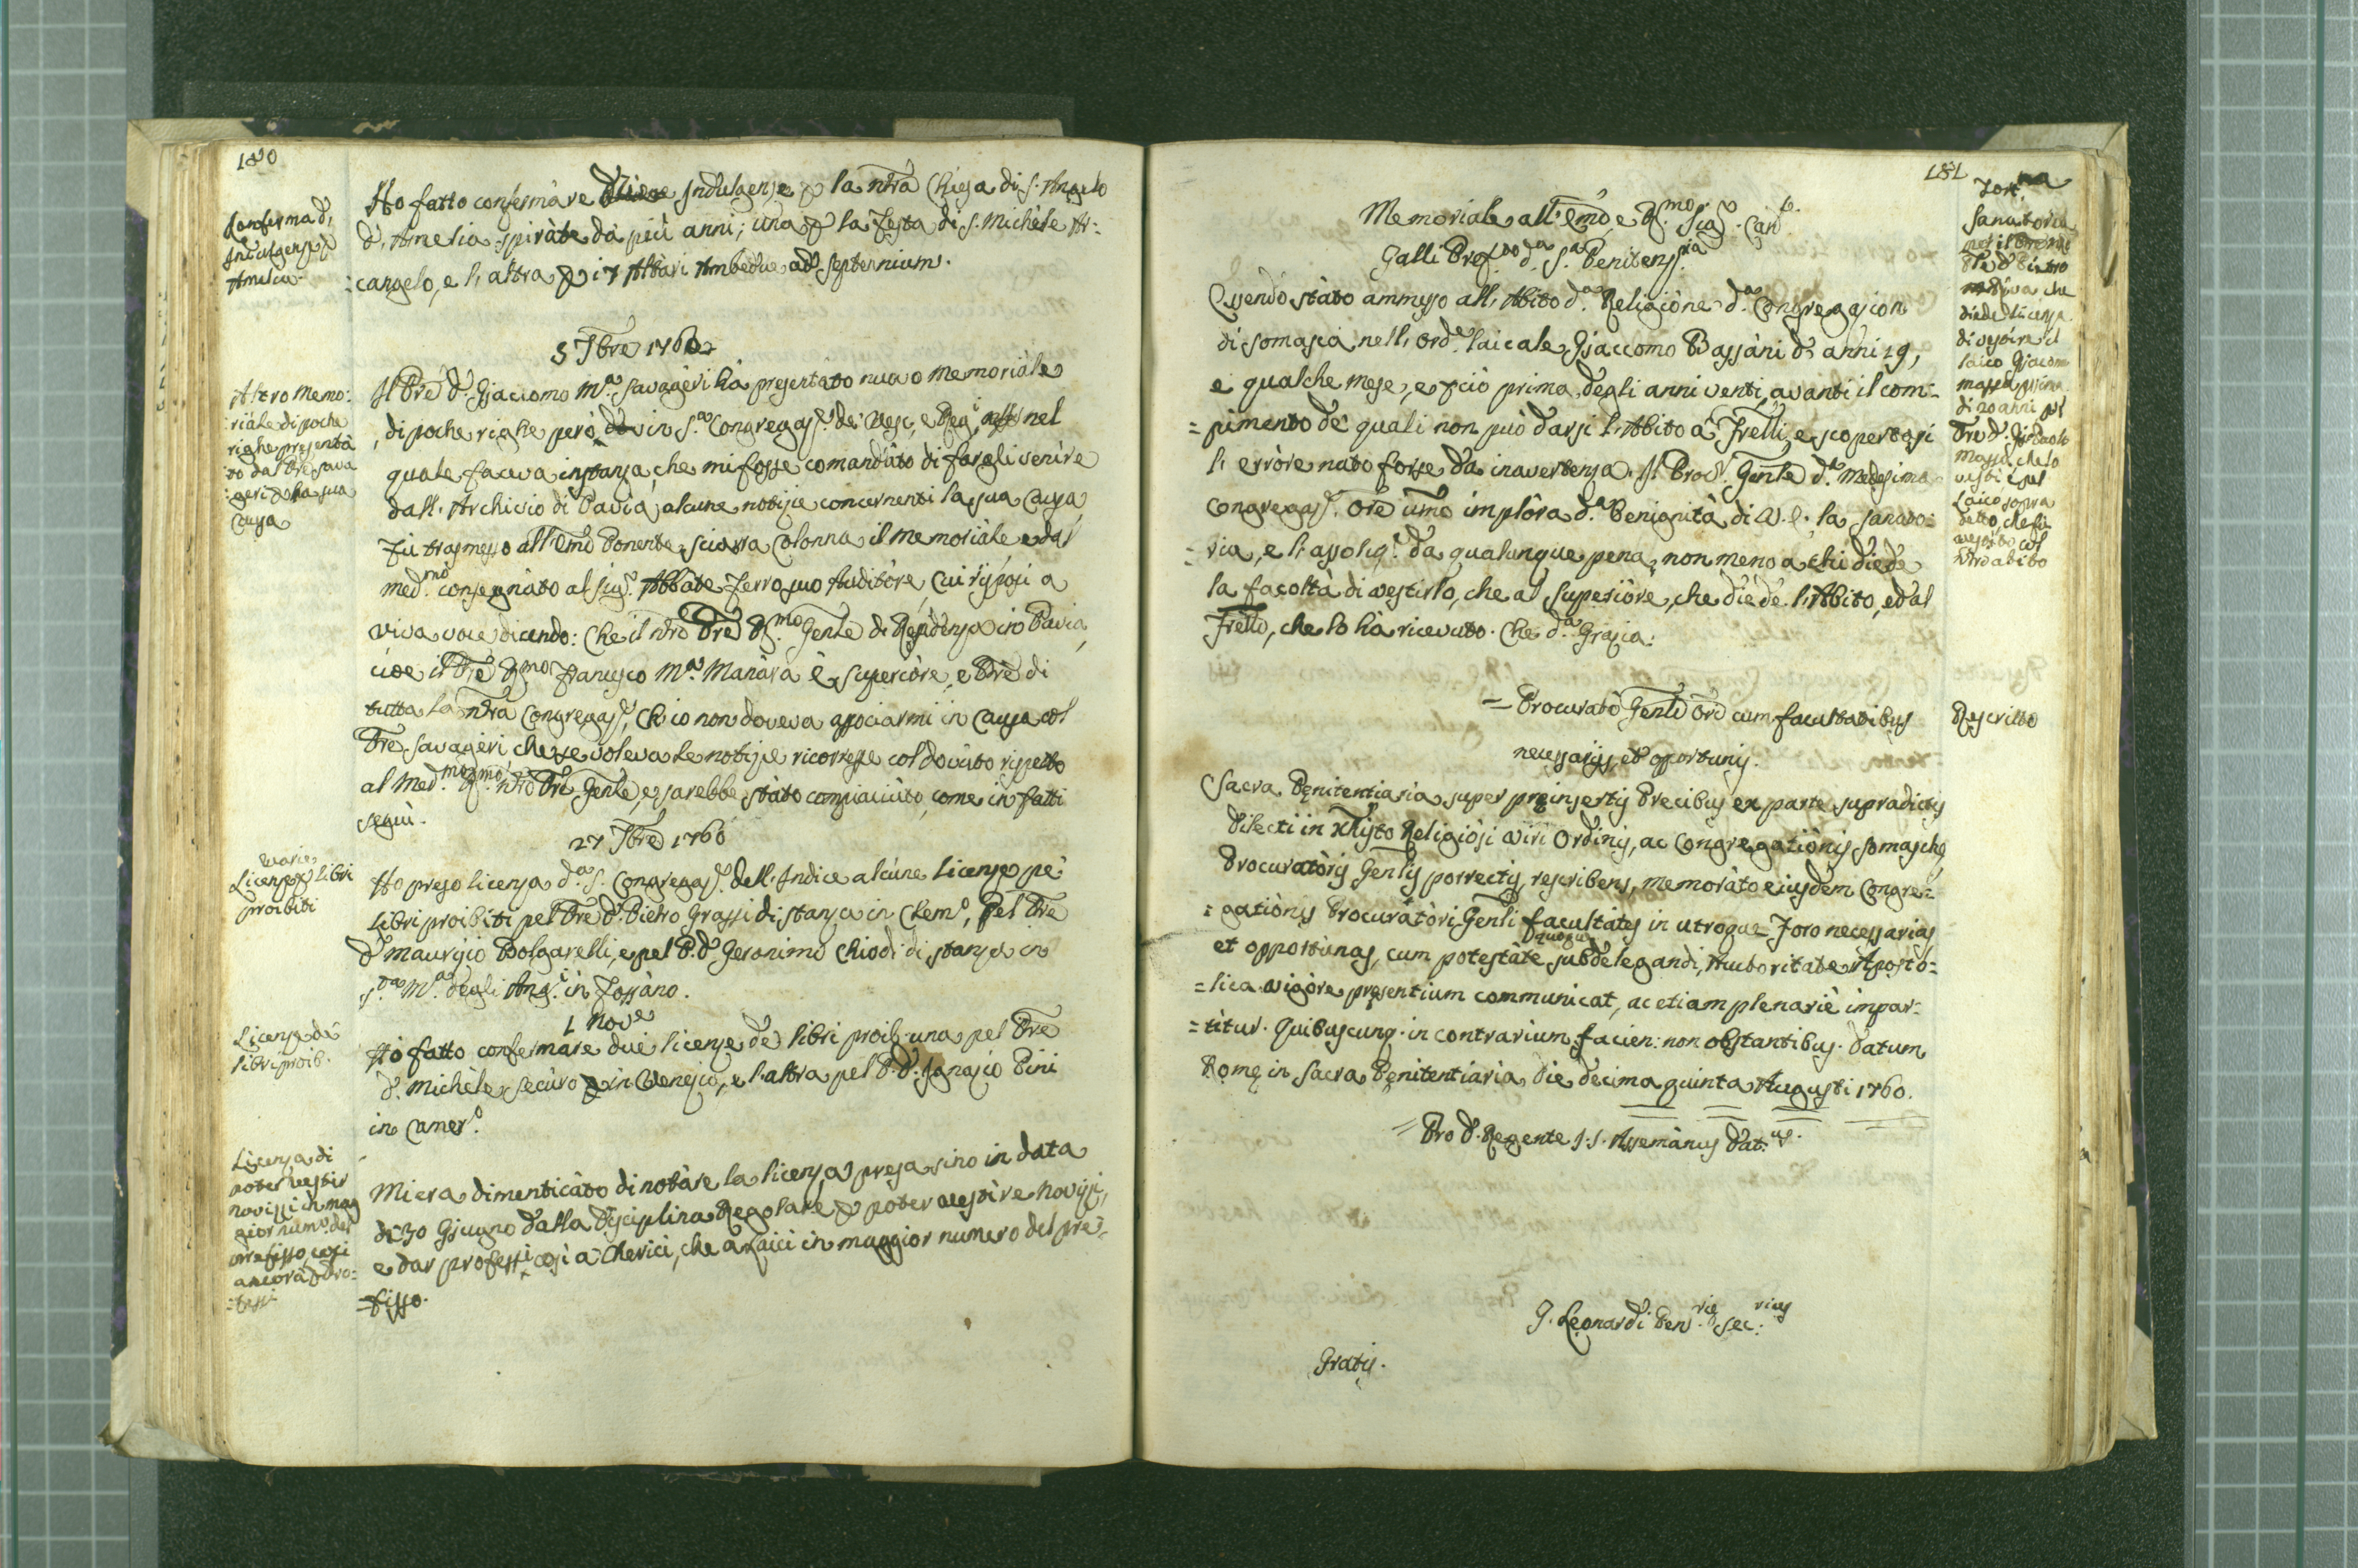 180
Conferma d'
Indulgenze p
Amelia.
Ho fatto confermare Indulgenze p la nrã Chiesa di S. Angelo
d'Amelia spirate da più anni; una p la Festa di S. Michele Ar:
:cangelo, e l'altra p i 7 Altari Ambedue ad septennium.
5 7bre 1760
Altro Memo:
:riale di poche
righe presenta
to dal Pre Sava
:geri p la sua
Causa
Il Pre D. Giacomo Mª. Savageri ha presentato nuovo Memoriale
di poche righe però in S.ª Congregaz.e de' Vesc., e Reg.i nel
quale faceva instanza, che mi fosse comandato di fargli venire
dall'Archivio di Pavia alcune notizie concernenti la sua Causa,
Fu trasmesso all'Emo Ponente Sciarra Colonna il memoriale e dal
med.mo consegnato al Sig.r Abbate Ferro suo Auditore, Cui risposi a
viva voce dicendo: Che il nrõ Pre R.mo Gentle di Residenza in Pavia,
cioè il Pre R.mo Francesco Mª. Manara è superiore, e Pre di
tutta la nrã Congregaz.e, Ch'io non doveva associarmi in Causa col
Pre Savageri che se voleva le notizie ricorresse col dovuto rispetto
al Med.mo R.mo nrõ Pre Gentle, e sarebbe stato compiaciuto, come in fatti
seguì.
27 7bre 1760
Varie
Licenze p libri
proibiti
Ho preso licenza d.ª S. Congregaz.e dell'Indice alcune licenze pe'
libri proibiti pel Pre D. Pietro Grassi di stanza in Clem.o, Pel Pre
D. Maurizio Bolgarelli, e pel P. D. Geronimo Chiodi di stanza in
S.ta Mª. degli Ang.i in Fossano.
1 Nove
Licenze de'
libri proib.
Ho fatto confermare due licenze de' libri proib. una pel Pre
D. Michele Securo in Venezia, e l'altra pel P. D. Ignazio Pini
in Camer.o
Licenza di
poter vestir
novizzi in mag
gior num.o del
prefisso, così
ancora p Pro:
:fessi
Mi era dimenticato di notare la licenza presa sino in data
di 30 Giugno dalla Disciplina Regolare p poter vestire Novizzi,
e dar professi così a Cherici, che a Laici in maggior numero del pre:
=fisso.
181
Memoriale all'Emo, e R.mo Sig.r Card.
Galli Pref.to d.ª S.ª Penitenz.ria
Essendo stato ammesso all'Abito d.ª Religione d.ª Congregazion
di Somasca nell'Ord.e laicale Giaccomo Bassani d'anni 19,
e qualche mese, e p ciò prima degli anni venti avanti il com=
=pimento de' quali non può darsi l'Abito a' Frelli, e scopertosi
l'errore nato forse da inavertenza. Il Proc.r Gentle d.ª Medesima
Congregaz.e Ore umo implora d.ª Benignità di V. E. la sanato=
=ria, e l'assoluz.e da qualunque pena, non meno a chi diede
la facoltà di vestirlo, che al Superiore, che diede l'Abito, ed al
Frello, che lo hà ricevuto. Che d.ª Grazia.
Sanatoria
pel Pre
D. Pietro
che
diede licenza
di vestire il
laico Giacomo
prima
di 20 anni pel
Pre D. Gio Paolo
Massa, che lo
vestì e pel
Laico sopra
detto, che fù
vestito col
nrõ abito
= Procurati Gentli Ord cum facultatibus
necessarijs, et opportunis.
Rescritto
Sacra Penitentiaria super preinsertis Precibus ex parte supradictis
Dilecti in Xhisto Religiosi Viri Ordinis, ac Congregationis Somasche
Procuratoris Genlis porrectis, rescribens, memorato eiusdem Congre=
=gationis Procuratori Genli facultates in utroque Foro necessarias
et opportunas, cum potestate quoque subdelegandi, Authoritate Aposto=
=lica vigore presentium communicat, ac etiam plenariè impar=
=titur. Quibuscunq. in contrarium facien: non obstantibus. Datum
Rome in Sacra Penitentiaria die decima quinta Augusti 1760.
= Pro D. Regente I. S. Assemanus Dat.us.
G. Leonardi Pen.rie Sec.rius
Gratis.